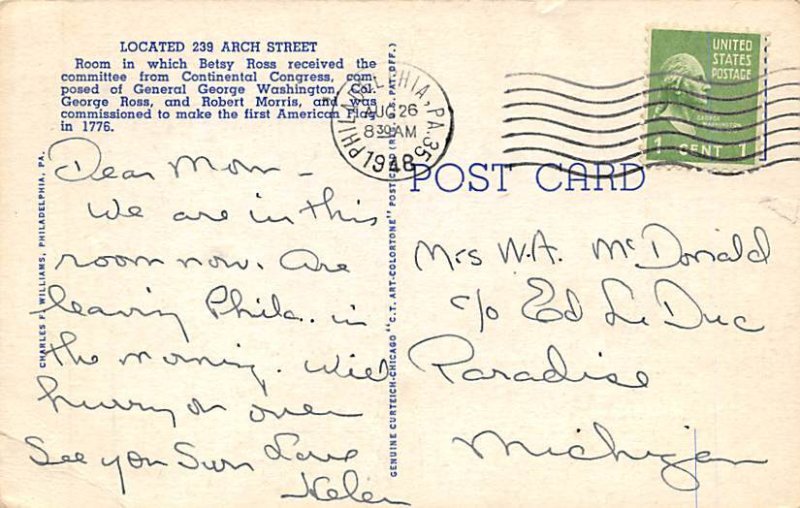 LOCATED 239 ARCH STREET
Room in which Betsy Ross received the
committee from Continental Congress, com-
posed of General George Washington, Col.
George Ross, and Robert Morris, and was
commissioned to make the first American Flag
in 1776.
Dear Mom –
We are in this
room now. Are
leaving Phila. in
the morning. Will
hurry on over
See you Sun Love
Helen
CHARLES F. WILLIAMS, PHILADELPHIA, PA.
GENUINE CURTEICH-CHICAGO "C.T. ART-COLORTONE" POSTCARD (REG. U.S. PAT. OFF.)
PHILADELPHIA, PA. 35
AUG 26
8 30 AM
UNITED
STATES
POSTAGE
GEORGE
WASHINGTON
1 CENT 1
POST CARD
Mrs W.A. McDonald
c/o Ed LeDuc
Paradise
Michigan